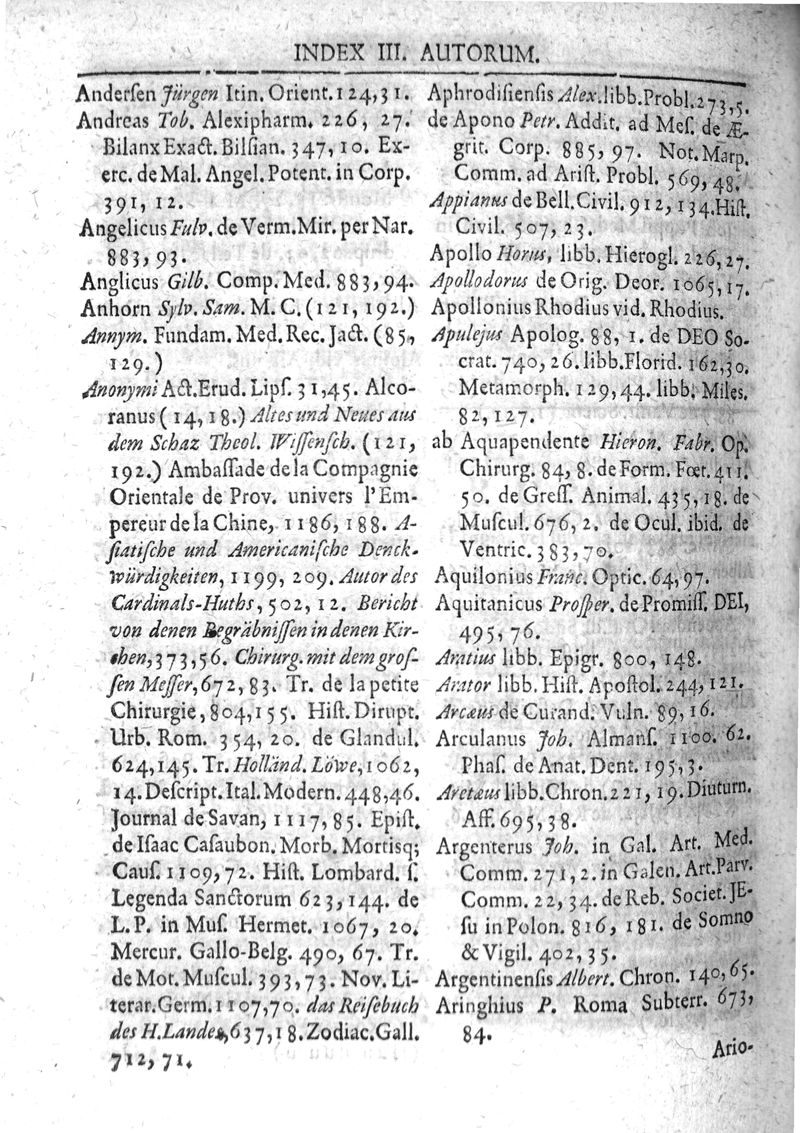 INDEX III. AUTORUM.
Anderſen Jürgen Itin. Orient. 124, 31.
Andreas Tob. Alexipharm. 226, 27.
Bilanx Exact. Bilſian. 347, 10. Ex-
erc. de Mal. Angel. Potent. in Corp.
391, 12.
Angelicus Fulv. de Verm. Mir. per Nar.
883, 93.
Anglicus Gilb. Comp. Med. 883, 94.
Anhorn Sylv. Sam. M. C. (121, 192.)
Annym. Fundam. Med. Rec. Jact. (85,
129.)
Anonymi Act. Erud. Lipſ. 31, 45. Alco-
ranus (14, 18.) Altes und Neues aus
dem Schaz Theol. Wiſſenſch. (121,
192.) Ambaſſade de la Compagnie
Orientale de Prov. univers l'Em-
pereur de la Chine, 1186, 188. A-
ſiatiſche und Americaniſche Denck-
würdigkeiten, 1199, 209. Autor des
Cardinals-Huths, 502, 12. Bericht
von denen Begräbniſſen in denen Kir-
chen, 373, 56. Chirurg. mit dem groſ-
ſen Meſſer, 672, 83. Tr. de la petite
Chirurgie, 804, 155. Hiſt. Dirupt.
Urb. Rom. 354, 20. de Glandul.
624, 145. Tr. Holländ. Löwe, 1062,
14. Deſcript. Ital. Modern. 448, 46.
Journal de Savan, 1117, 85. Epiſt.
de Iſaac Caſaubon. Morb. Mortisq;
Cauſ. 1109, 72. Hiſt. Lombard. ſ.
Legenda Sanctorum 623, 144. de
L. P. in Muſ. Hermet. 1067, 20.
Mercur. Gallo-Belg. 490, 67. Tr.
de Mot. Muſcul. 393, 73. Nov. Li-
terar. Germ. 1107, 70. das Reiſebuch
des H. Landes, 637, 18. Zodiac. Gall.
712, 71.
Aphrodiſienſis Alex. libb. Probl. 273, 5.
de Apono Petr. Addit. ad Meſ. de Æ-
grit. Corp. 885, 97. Not. Marp.
Comm. ad Ariſt. Probl. 569, 48.
Appianus de Bell. Civil. 912, 134. Hiſt.
Civil. 507, 23.
Apollo Horus, libb. Hierogl. 226, 27.
Apollodorus de Orig. Deor. 1065, 17.
Apollonius Rhodius vid. Rhodius.
Apulejus Apolog. 88, 1. de DEO So-
crat. 740, 26. libb. Florid. 162, 30.
Metamorph. 129, 44. libb. Miles.
82, 127.
ab Aquapendente Hieron. Fabr. Op.
Chirurg. 84, 8. de Form. Fœt. 411.
50. de Greſſ. Animal. 435, 18. de
Muſcul. 676, 2. de Ocul. ibid. de
Ventric. 383, 70.
Aquilonius Franc. Optic. 64, 97.
Aquitanicus Proſper. de Promiſſ. DEI,
495, 76.
Aratius libb. Epigr. 800, 148.
Arator libb. Hiſt. Apoſtol. 244, 121.
Arcæus de Curand. Vuln. 89, 16.
Arculanus Joh. Almanſ. 1100. 62.
Phaſ. de Anat. Dent. 195, 3.
Aretæus libb. Chron. 221, 19. Diuturn.
Aff. 695, 38.
Argenterus Joh. in Gal. Art. Med.
Comm. 271, 2. in Galen. Art. Parv.
Comm. 22, 34. de Reb. Societ. JE-
ſu in Polon. 816, 181. de Somno
& Vigil. 402, 35.
Argentinenſis Albert. Chron. 140, 65.
Aringhius P. Roma Subterr. 673,
84.
Ario-